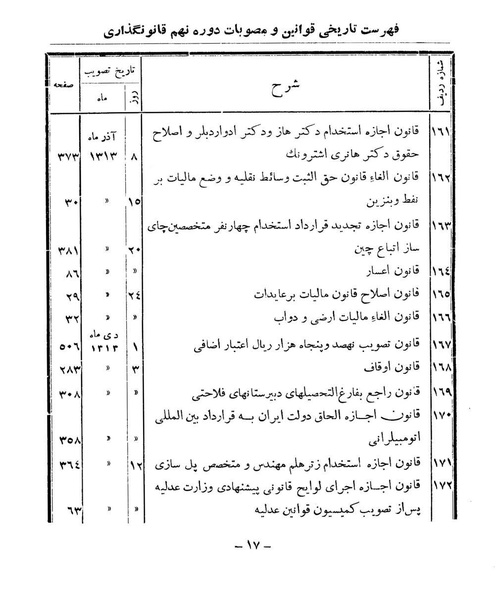 فهرست تاریخی قوانین و مصوبات دوره نهم قانونگذاری
شماره ردیف شرح تاریخ تصویب صفحه
روز ماه
۱۶۱ قانون اجازه استخدام دکتر هاز ودکتر ادواردبلر و اصلاح آذر ماه
حقوق دکتر هانری اشترونك ۸ ۱۳۱۳ ۳۷۳
۱۶۲ قانون الغاء قانون حق الثبت وسائط نقلیه و وضع مالیات بر
نفط وبنزین ۱۵ » ۳۰
۱۶۳ قانون اجازه تجدید قرارداد استخدام چهارنفر متخصصین‌چای
ساز اتباع چین ۲۰ » ۳۸۱
۱۶٤ قانون اعسار » » ۸۶
۱۶۵ قانون اصلاح قانون مالیات برعایدات ۲٤ » ۲۹
۱۶۶ قانون الغاء مالیات ارضی و دواب » » ۳۲
۱۶۷ قانون تصویب نهصد وپنجاه هزار ریال اعتبار اضافی ۱ دی ماه ۱۳۱۳ ۵۰۶
۱۶۸ قانون اوقاف ۳ » ۲۸۳
۱۶۹ قانون راجع بفارغ‌التحصیلهای دبیرستانهای فلاحتی » » ۳۰۸
۱۷۰ قانون اجازه الحاق دولت ایران به قرارداد بین المللی
اتومبیلرانی » » ۳۵۸
۱۷۱ قانون اجازه استخدام زترهلم مهندس و متخصص پل سازی ۱۲ » ۳۶٤
۱۷۲ قانون اجازه اجرای لوایح قانونی پیشنهادی وزارت عدلیه
پس‌از تصویب کمیسیون قوانین عدلیه » » ۶۳
– ۱۷ –